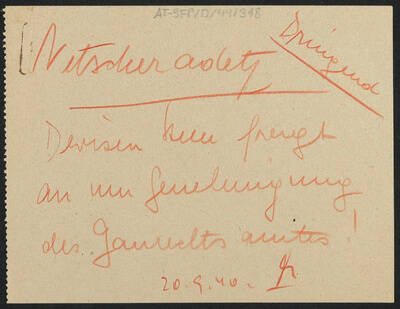 AT-SFP/D/44/318
Dringend
Netscheradetz
Devisen frengt
an um Genehmigung
des Gaurechtsamtes!
20.9.40.